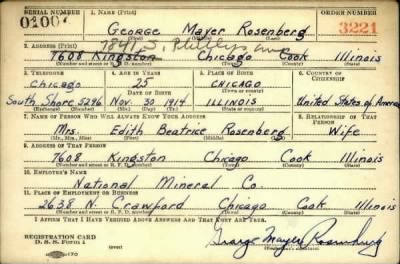 SERIAL NUMBER 1. NAME (Print) ORDER NUMBER
George Mayer Rosenberg 3221
2. ADDRESS (Print)
7608 Kingston Chicago Cook Illinois
(Number and street or R. F. D. number) (Town) (County) (State)
3. TELEPHONE 4. AGE IN YEARS 5. PLACE OF BIRTH 6. COUNTRY OF CITIZENSHIP
Chicago 25 CHICAGO
DATE OF BIRTH (Town or county)
South Shore 5296 Nov. 30 1914 ILLINOIS United States of America
(Exchange) (No.) (Mo.) (Day) (Yr.) (State or country)
7. NAME OF PERSON WHO WILL ALWAYS KNOW YOUR ADDRESS 8. RELATIONSHIP OF THAT PERSON
Mrs. Edith Beatrice Rosenberg Wife
(Mr., Mrs., Miss) (First) (Middle) (Last)
9. ADDRESS OF THAT PERSON
7608 Kingston Chicago Cook Illinois
(Number and street or R. F. D. number) (Town) (County) (State)
10. EMPLOYER'S NAME
National Mineral Co.
11. PLACE OF EMPLOYMENT OR BUSINESS
2638 N. Crawford Chicago Cook Illinois
(Number and street or R. F. D. number) (Town) (County) (State)
I AFFIRM THAT I HAVE VERIFIED ABOVE ANSWERS AND THAT THEY ARE TRUE.
REGISTRATION CARD
D. S. S. Form 1
George Mayer Rosenberg